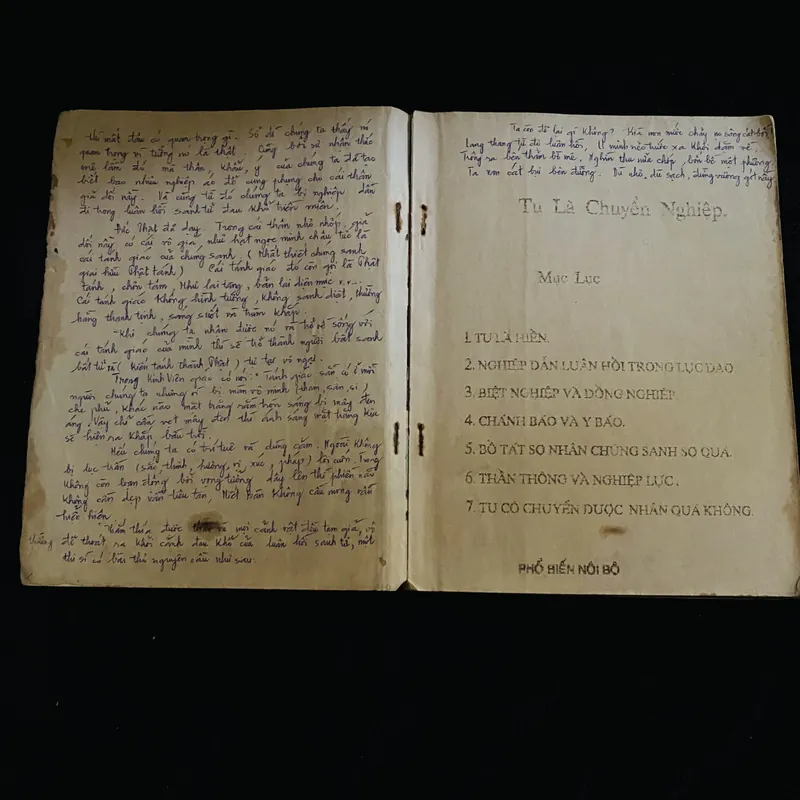 thì mất đâu có quan trọng gì. Sở dĩ chúng ta thấy nó
quan trọng vì tưởng nó là thật. Cũng bởi sự nhận thức
mê lầm đó mà thân, khẩu, ý của chúng ta đã tạo
biết bao nhiêu nghiệp ác để cung phụng cho cái thân
giả dối này. Và cũng từ đó chúng ta bị nghiệp dẫn
đi trong luân hồi sanh tử đau khổ triền miên.
Đức Phật đã dạy. Trong cái thân nhỏ nhớp, giả
dối này có cái vô giá, như hạt ngọc minh châu, tức là
cái tánh giác của chúng sanh, ( Nhất thiết chúng sanh
giai hữu Phật tánh) Cái tánh giác đó còn gọi là Phật
tánh, chơn tâm, Như lai tạng, bản lai diện mục v.v...
Cái tánh giác không hình tướng, không sanh diệt, thường
hằng thanh tịnh, sáng suốt và trùm khắp.
Khi chúng ta nhận được nó và trở về sống với
cái tánh giác của mình thì sẽ trở thành người bất sanh
bất tử và ( kiến tánh thành Phật) tự tại vô ngại.
Trong Kinh Viên giác có nói: "Tánh giác sẵn có ở mỗi
người chúng ta nhưng vì bị màn vô minh, tham, sân, si,
che phủ, khác nào mặt trăng rằm tròn sáng bị mây đen
áng. Vậy chỉ cần vẹt mây đen thì ánh sáng mặt trăng kia
sẽ hiện ra khắp bầu trời.
Nếu chúng ta có trí tuệ và dũng cảm. Ngoài không
bị lục trần (sắc, thinh, hương, vị, xúc, pháp) lôi cuốn. Trong
không còn bạn đồng bởi vọng tưởng dấy lên thì phiền não
không cần dẹp vẫn tiêu tan, Niết bàn không cầu mong vẫn
hiện
Thấm thía được mọi cảnh vật đều tạm giả, vô
thường để thoát ra khỏi cảnh đau khổ của luân hồi sanh tử, một
thi sĩ có bài thi nguyện cầu như sau:
Ta còn để lại gì không? Kìa non nước chảy nọ sông cát bồi
Lang thang từ độ luân hồi, U minh nẻo trước xa khơi dặm về.
Trông ra bến thẳm bờ mê, Nghìn thu nửa chớp, bốn bề một phương.
Ta van cát bụi bên đường. Dù nhơ, dù sạch, đừng vương gót này
Tu Là Chuyển Nghiệp.
Mục Lục
1. TU LÀ HIỀN.
2. NGHIỆP DẪN LUÂN HỒI TRONG LỤC ĐẠO
3. BIỆT NGHIỆP VÀ ĐỒNG NGHIỆP.
4. CHÁNH BÁO VÀ Y BÁO.
5. BỒ TÁT SỢ NHÂN CHÚNG SANH SỢ QUẢ.
6. THẦN THÔNG VÀ NGHIỆP LỰC.
7. TU CÓ CHUYỂN ĐƯỢC NHÂN QUẢ KHÔNG.
PHỔ BIẾN NỘI BỘ